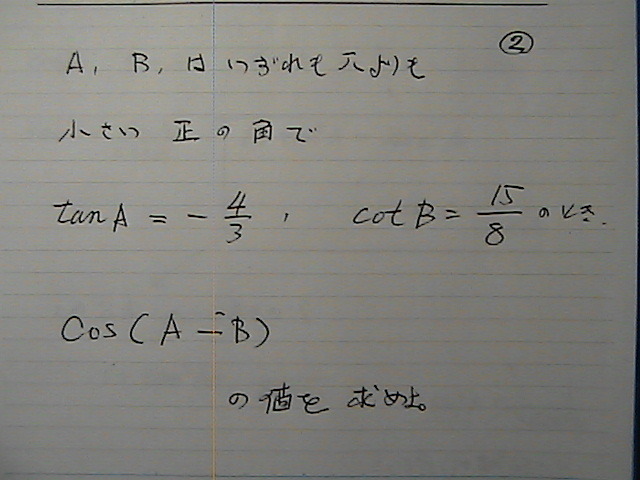 ②
A, B, はいづれも πよりも
小さい 正の角で
tan A = - 4/3 , cot B = 15/8 のとき.
cos(A - B)
の値を 求めよ。